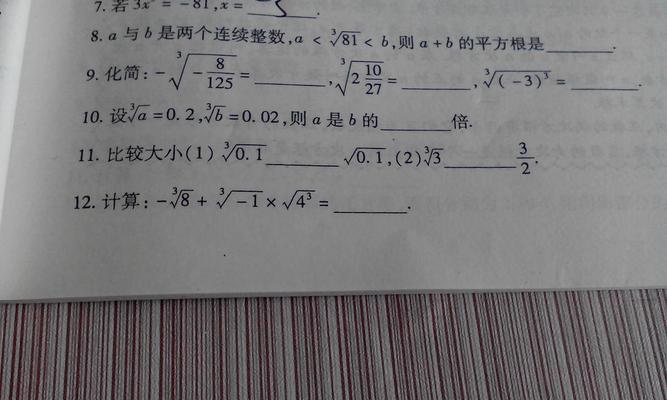 7. 若3x³ = -81, x = -3.
8. a 与 b 是两个连续整数, a < ∛81 < b, 则 a + b 的平方根是______.
9. 化简: -∛(-8/125) = ______, ∛(2 10/27) = ______, ∛((-3)³) = ______.
10. 设∛a = 0.2, ∛b = 0.02, 则 a 是 b 的______倍.
11. 比较大小(1) ∛0.1______√0.1, (2)∛3______3/2.
12. 计算: -∛8 + ∛-1 × √4³ = ______.